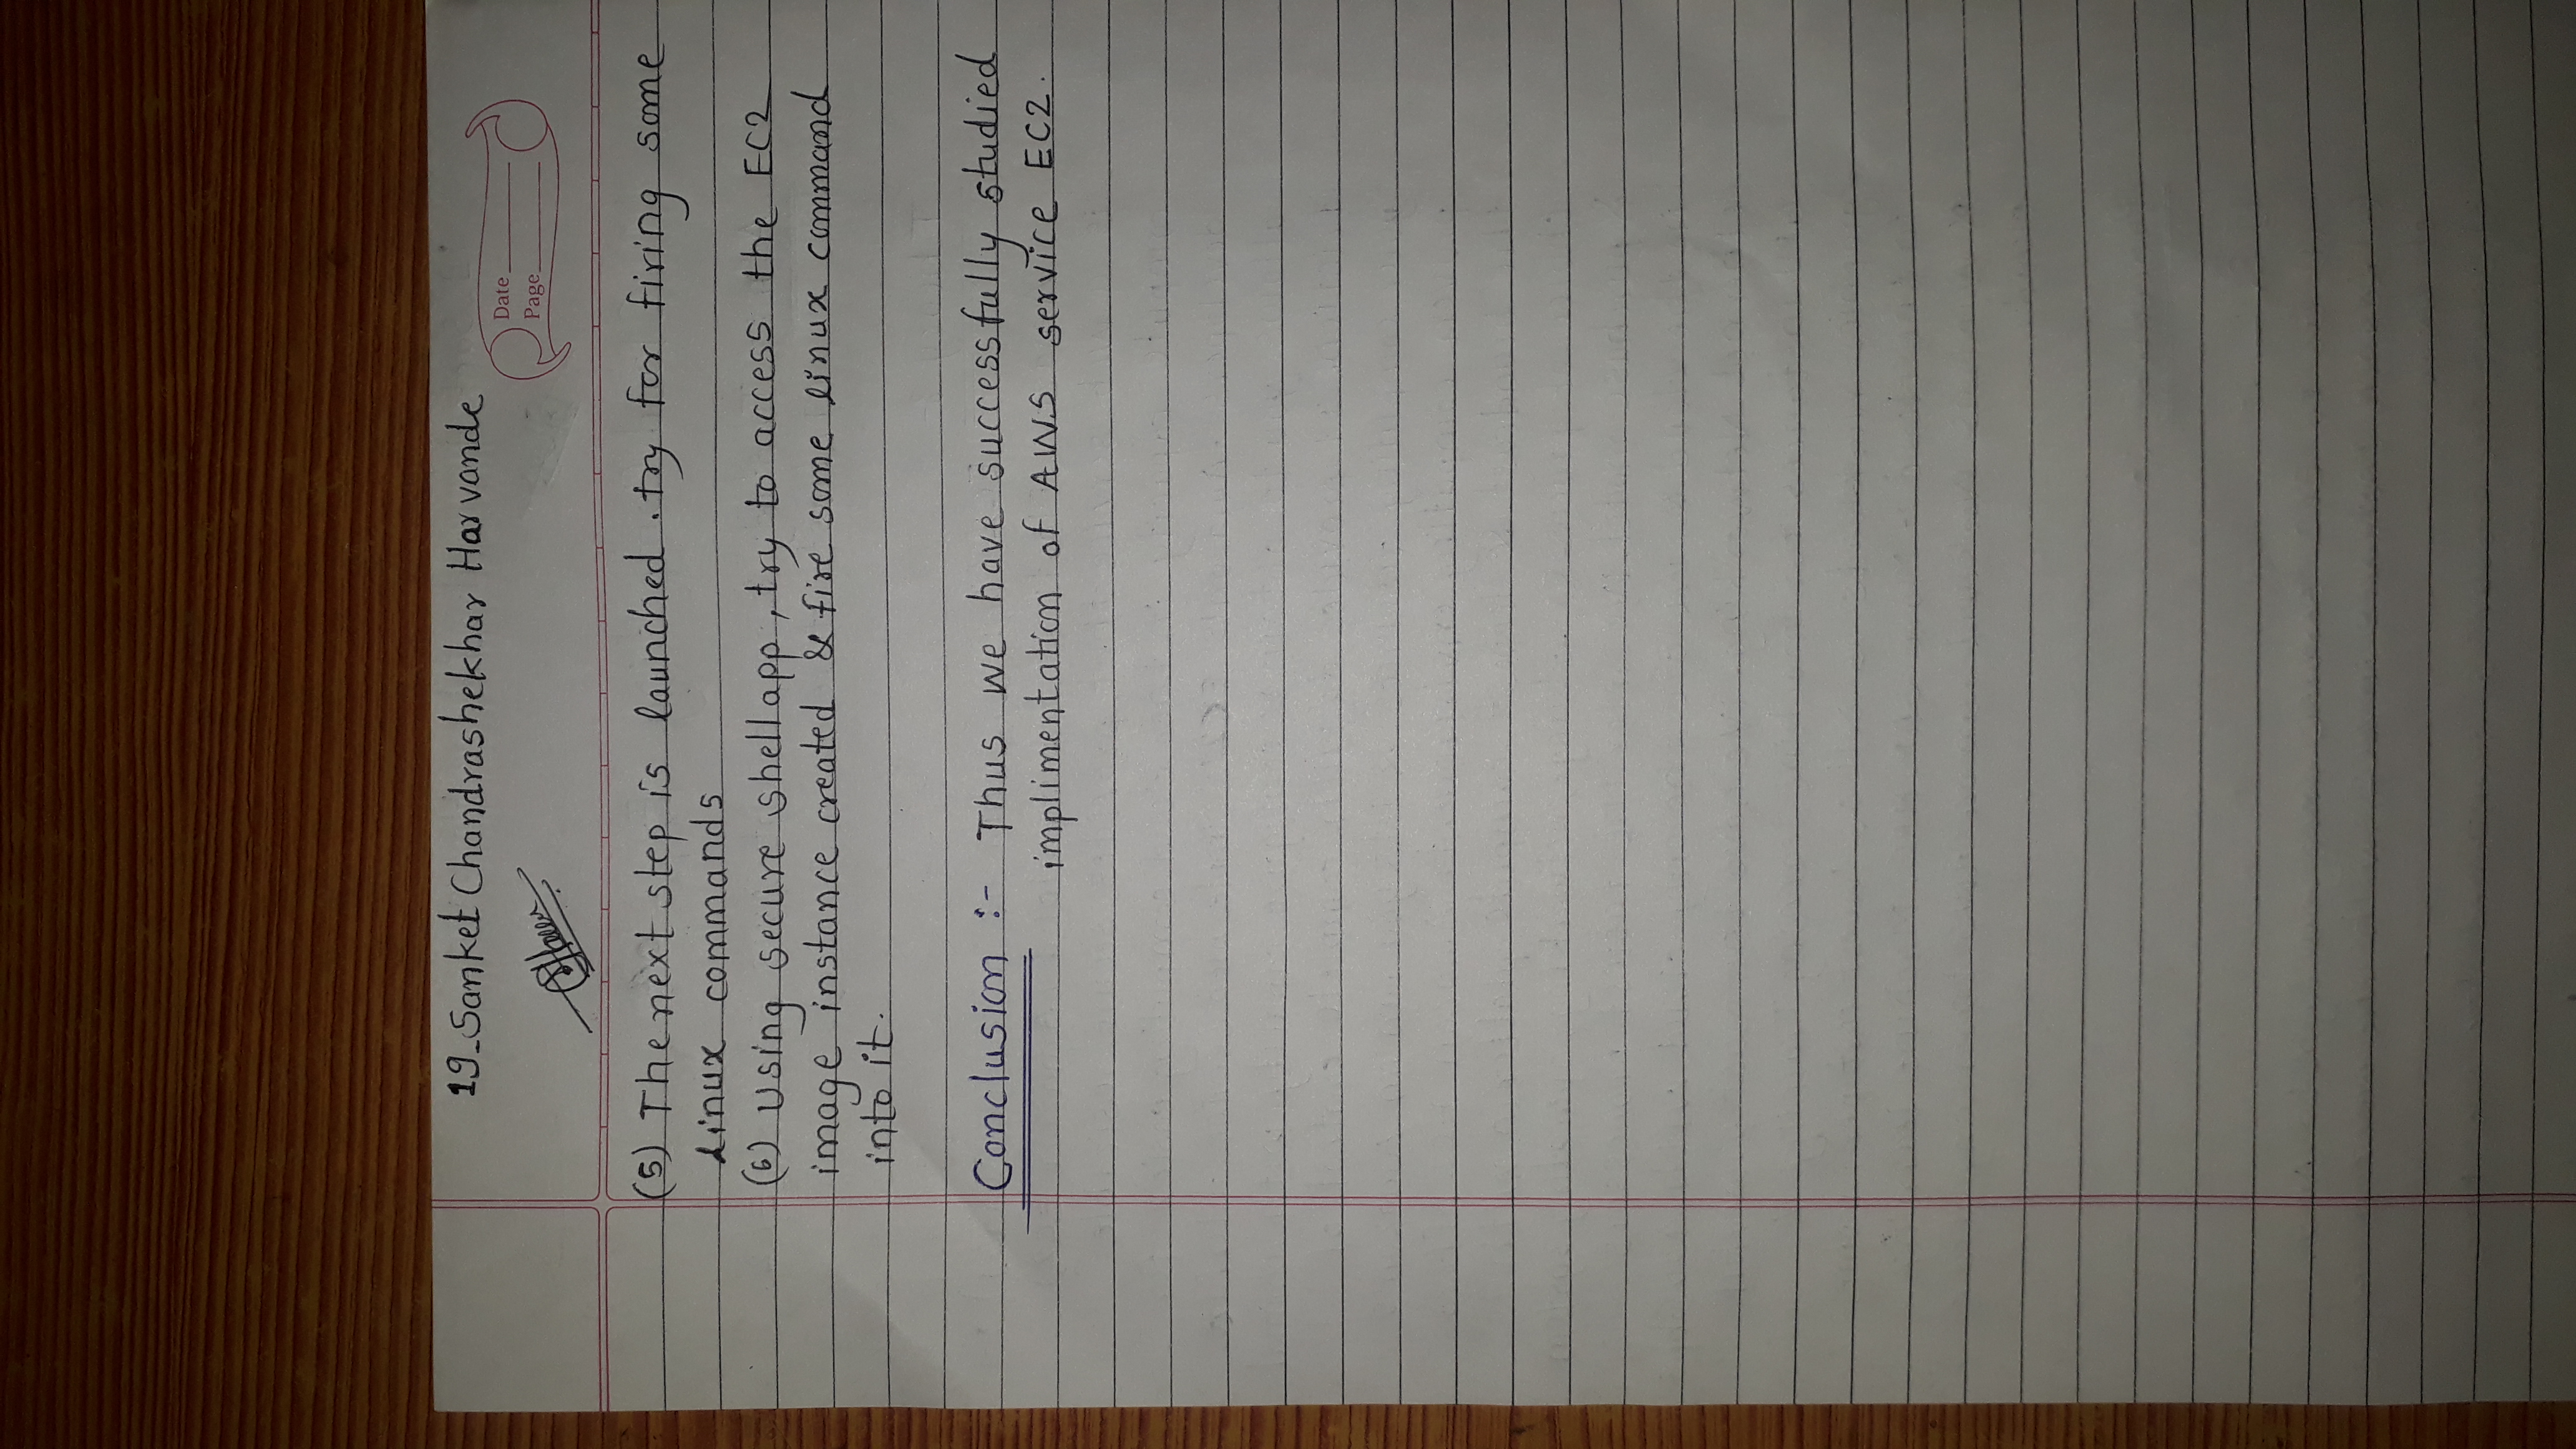 19_Sanket Chandrashekhar Harvande
Date
Page
(5) The next step is launched . try for firing some
Linux commands
(6) Using secure shell app, try to access the EC2
image instance created & fire some linux command
into it.
Conclusion :- Thus we have successfully studied
implimentation of AWS service EC2.